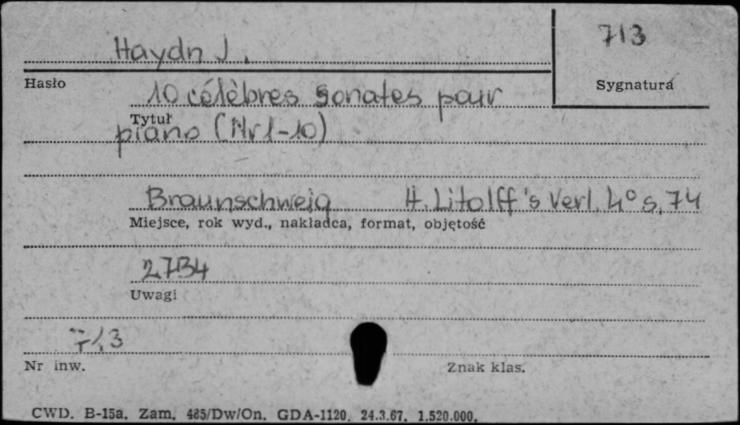 Haydn J.
713
Hasło
Sygnatura
10 célèbres sonates pour
Tytuł
piano (Nr 1-10)
Braunschweig H. Litolff's Verl. 4° s. 74
Miejsce, rok wyd., nakładca, format, objętość
Uwagi
Nr inw.
Znak klas.
CWD. B-15a. Zam. 485/Dw/On. GDA-1120. 24.3.67. 1.520.000.